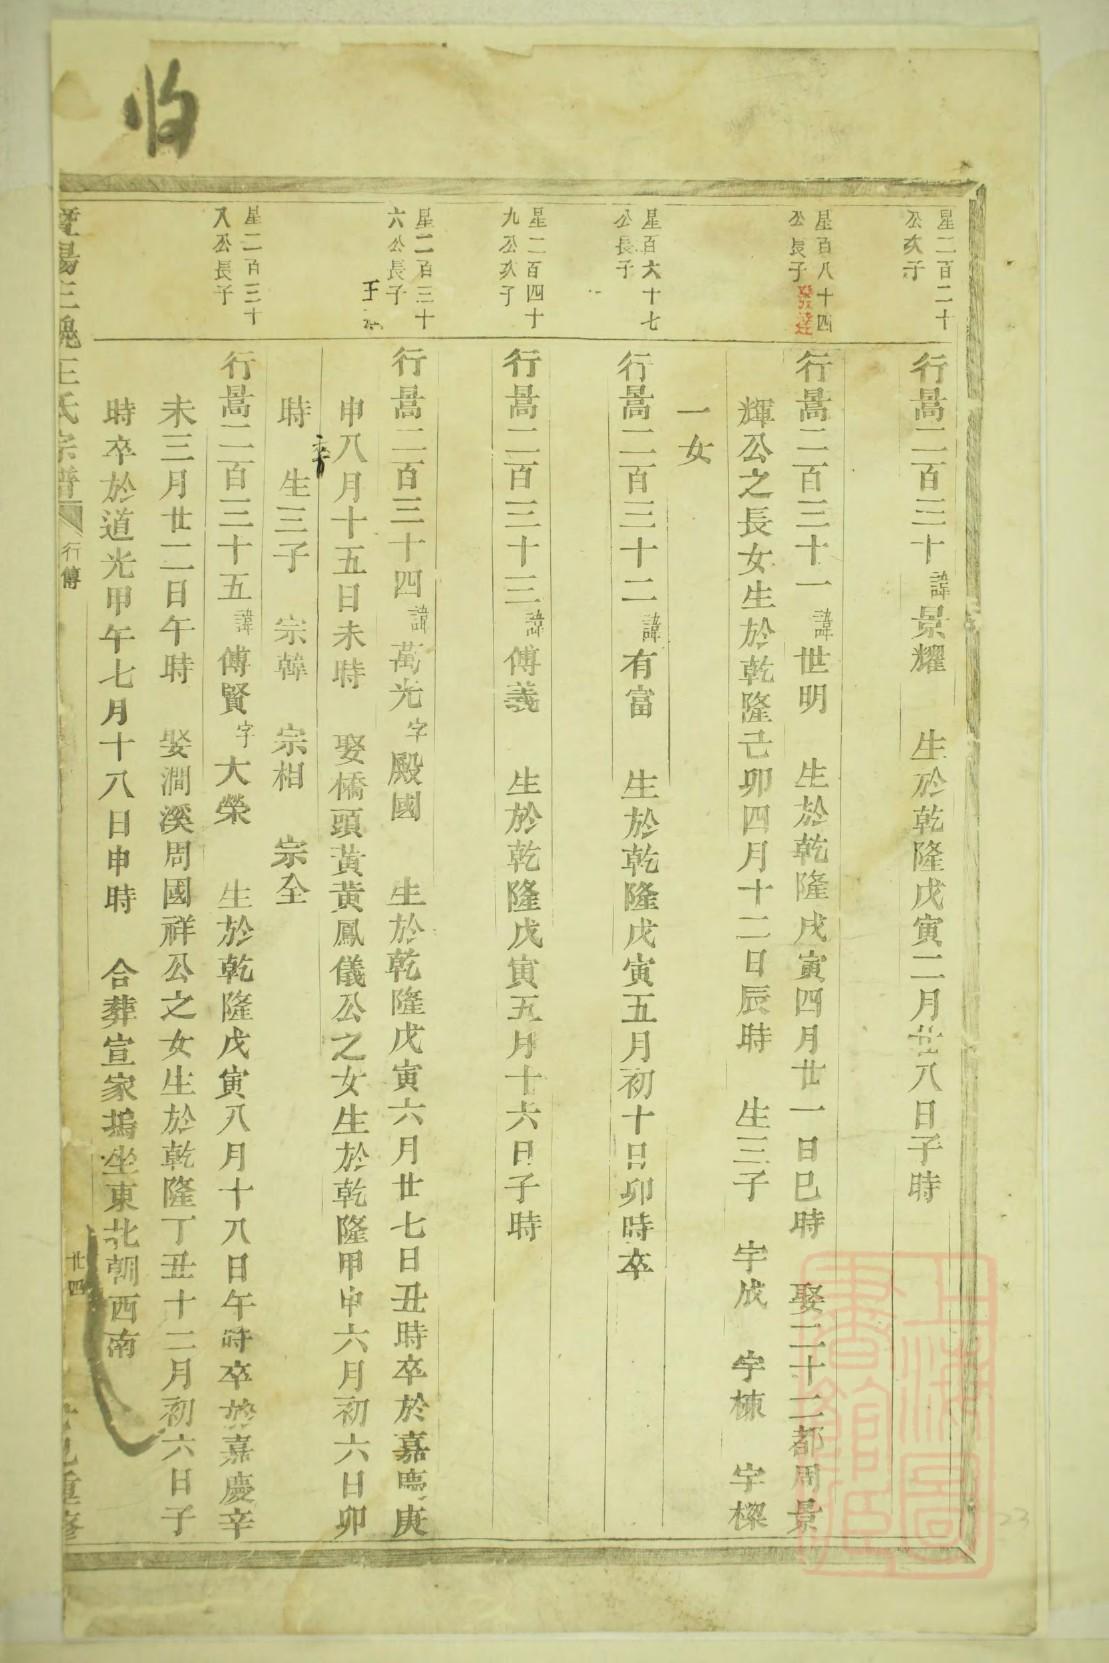 收
星二百二十
公次子
行暠二百三十諱景耀 生於乾隆戊寅二月廿八日子時
星百八十四
公長子發達
行暠二百三十一諱世明 生於乾隆戊寅四月廿一日巳時 娶二十二都周景
輝公之長女生於乾隆己卯四月十二日辰時 生三子 宇成 宇棟 宇樑
一女
星百六十七
公長子
行暠二百三十二諱有富 生於乾隆戊寅五月初十日卯時卒
星二百四十
九公次子
行暠二百三十三諱傅義 生於乾隆戊寅五月十六日子時
星二百三十
六公長子
行暠二百三十四諱萬光字殿國 生於乾隆戊寅六月廿七日丑時卒於嘉慶庚
申八月十五日未時 娶橋頭黃黃鳳儀公之女生於乾隆甲申六月初六日卯
時 生三子 宗韓 宗相 宗全
星二百三十
八公長子
行暠二百三十五諱傅賢字大榮 生於乾隆戊寅八月十八日午時卒於嘉慶辛
未三月廿二日午時 娶澗溪周國祥公之女生於乾隆丁丑十二月初六日子
時卒於道光甲午七月十八日申時 合葬宣家塢坐東北朝西南
暨陽 王氏宗譜 行傳 廿四 重修
上海圖書館藏
23